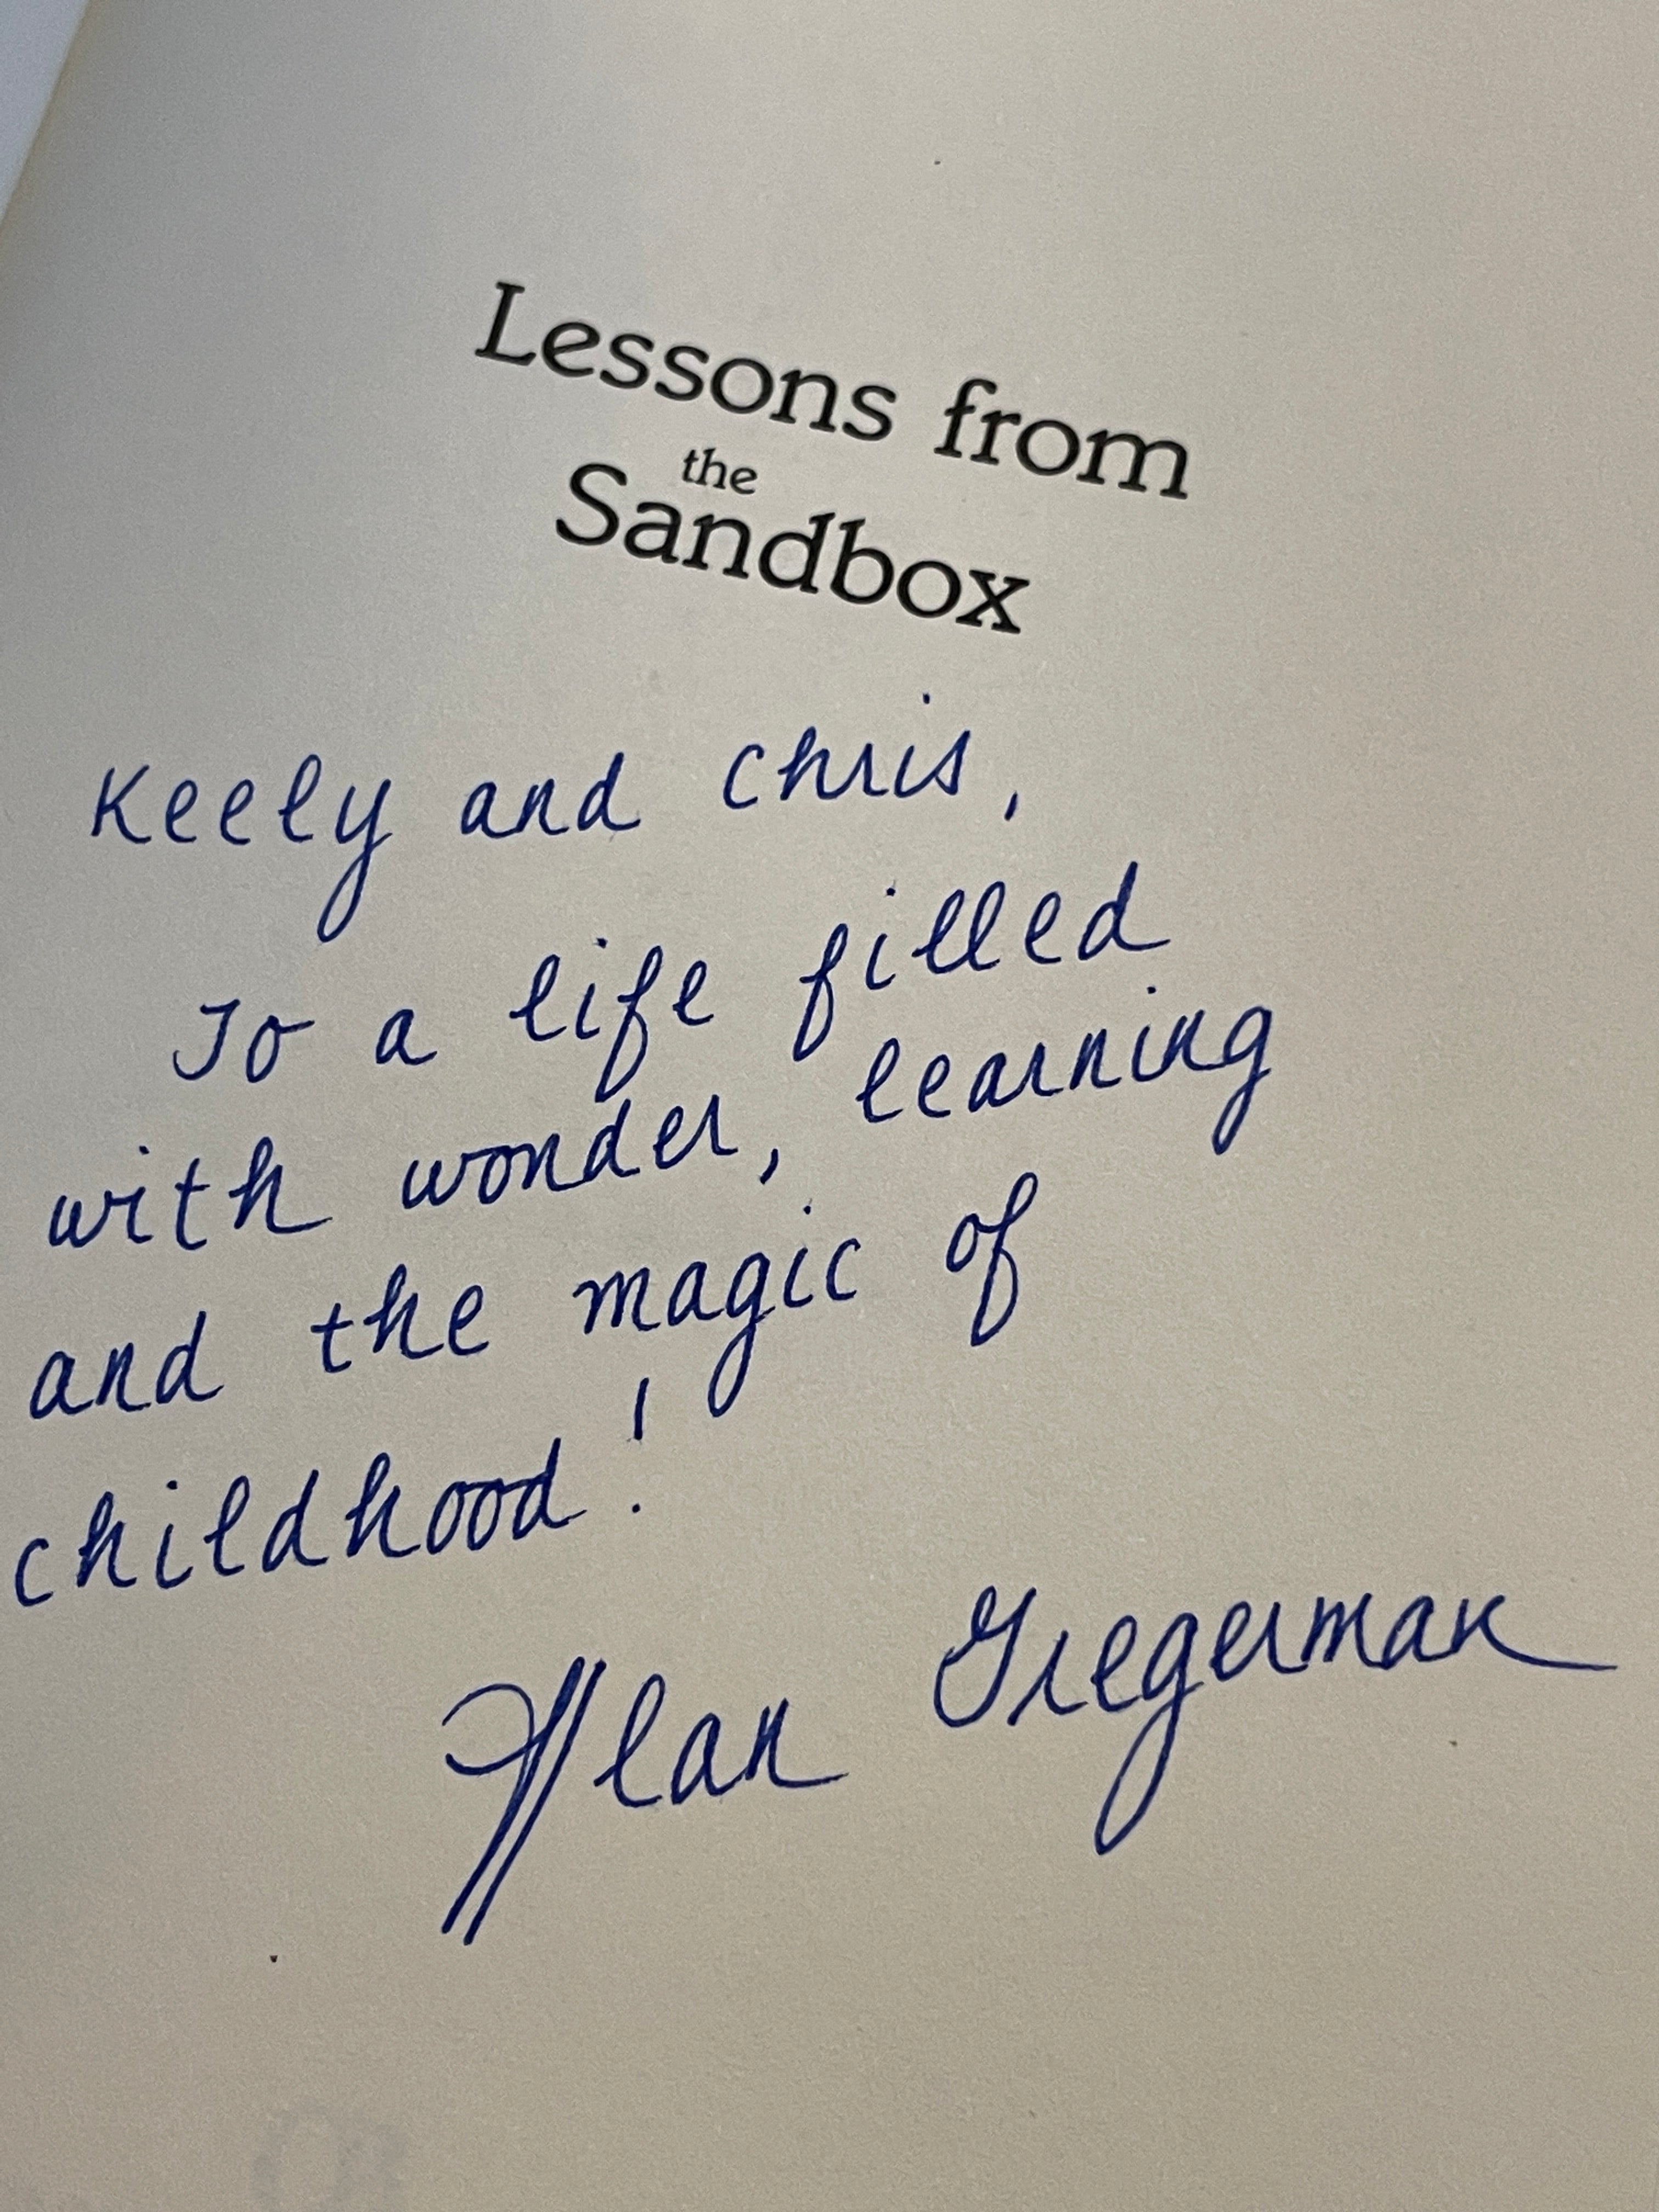 Lessons from
the
Sandbox
Keely and Chris,
To a life filled
with wonder, learning
and the magic of
childhood!
Alan Gregerman